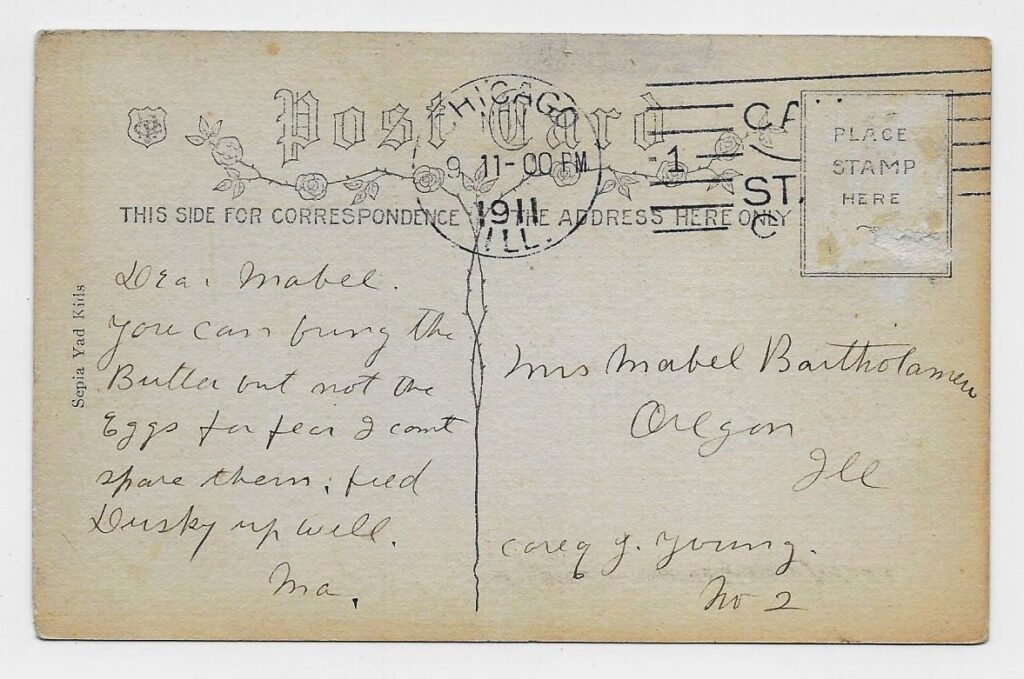 Post Card
CHICAGO
9 11-00 PM
1911
ILL.
1
CA
ST.
C
PLACE
STAMP
HERE
THIS SIDE FOR CORRESPONDENCE
THE ADDRESS HERE ONLY
Sepia Yad Kids
Dear Mabel.
You can bring the
Butter but not the
Eggs for fear I cant
spare them. feed
Dusky up well.
Ma.
Mrs Mabel Bartholamew
Oregon
Ill
Young.
No 2